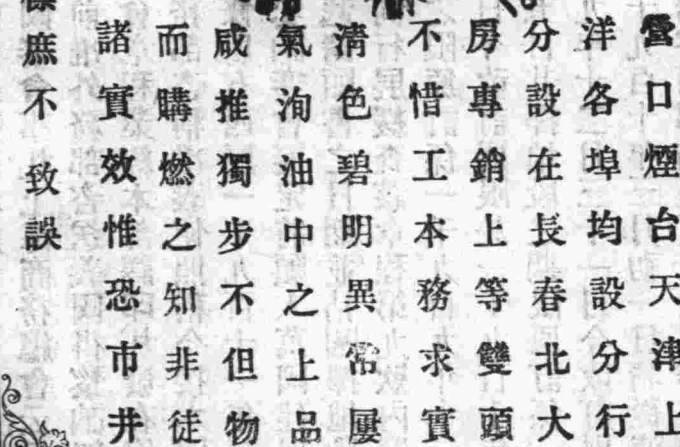 營口煙台天津上
洋各埠均設分行
分設在長春北大
房專銷上等雙頭
不惜工本務求實
清色碧明異常屢
氣洵油中之上品
咸推獨步不但物
而購燃之知非徒
諸實效惟恐市井
庶不致誤